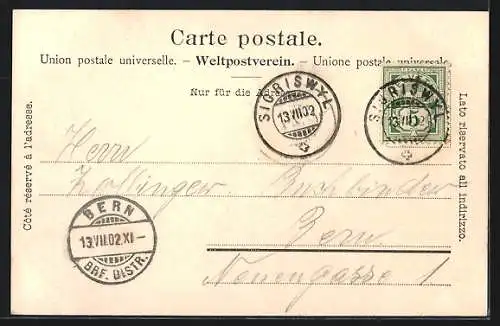 Carte postale.
Union postale universelle. – Weltpostverein. – Unione postale universale
Nur für die Adresse
Côté réservé à l'adresse.
Lato riservato all indirizzo.
SIGRISWYL
13.VII.02
SIGRISWYL
13.VII.02
5
Herrn
Zollinger, Buchbinder
Bern
Neuengasse 1
BERN
13.VII.02.XI–
BRF. DISTR.